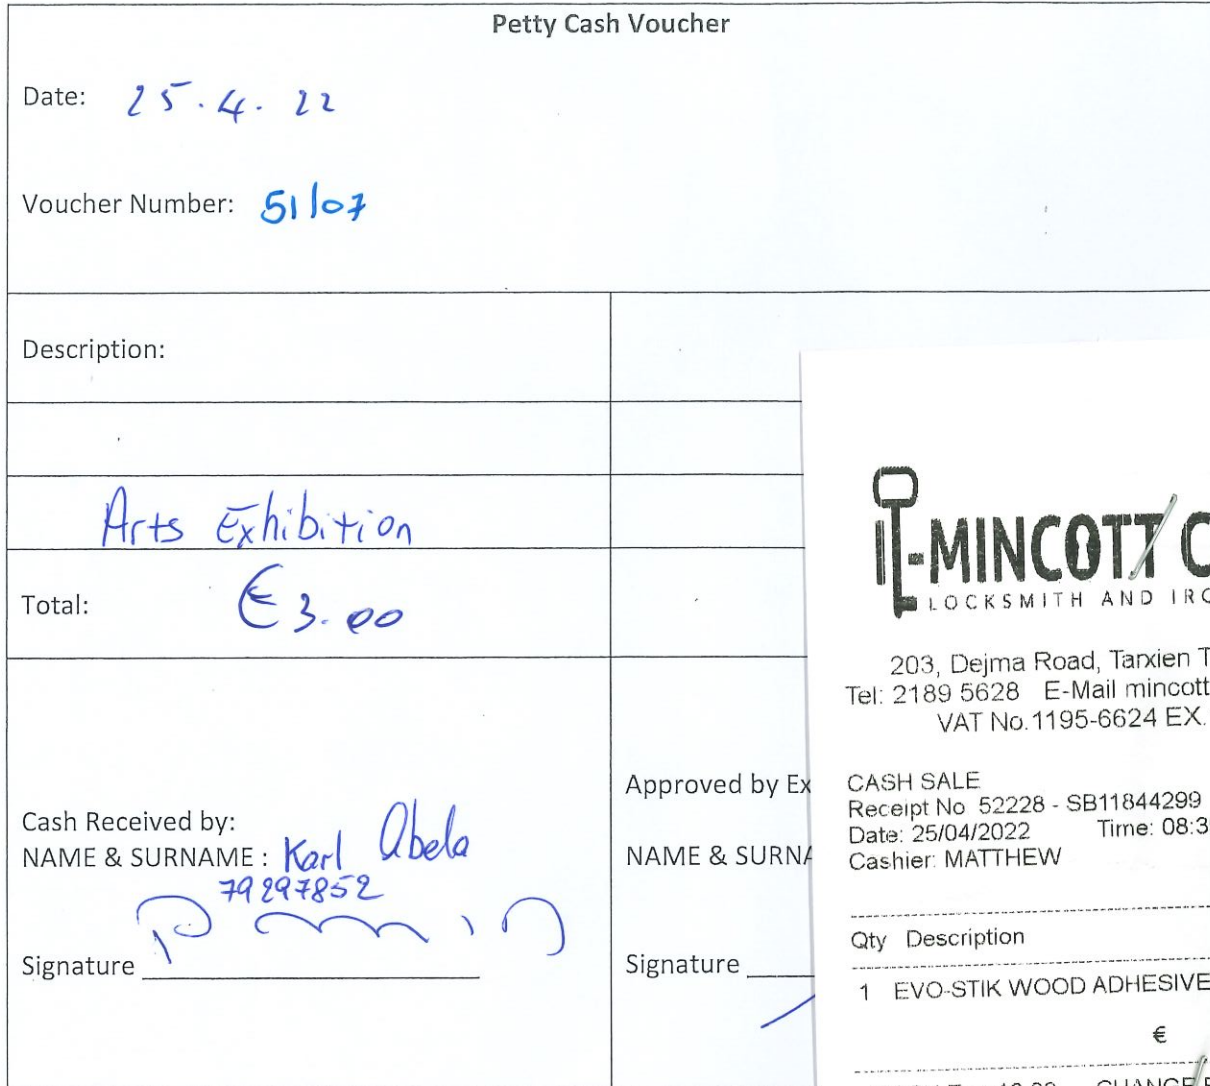 Petty Cash Voucher
Date: 25.4.22
Voucher Number: 51/07
Description:
Arts Exhibition
Total: €3.00
Cash Received by:
NAME & SURNAME : Karl Abela
79297852
Signature
Approved by Ex
NAME & SURNA
Signature
IL-MINCOTT C
LOCKSMITH AND IRO
203, Dejma Road, Tarxien T
Tel: 2189 5628 E-Mail mincott
VAT No.1195-6624 EX.
CASH SALE
Receipt No 52228 - SB11844299
Date: 25/04/2022 Time: 08:3
Cashier: MATTHEW
Qty Description
1 EVO-STIK WOOD ADHESIVE
€
CHANGE